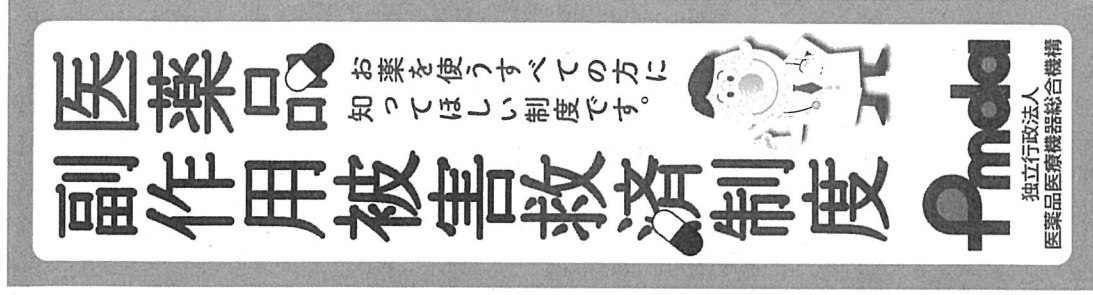 医薬品
副作用被害救済制度
お薬を使うすべての方に
知ってほしい制度です。
Pmda
独立行政法人
医薬品医療機器総合機構